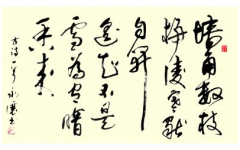 墙角数枝
梅凌寒独
自开
遥知不是
雪为有暗
香来
古诗一首